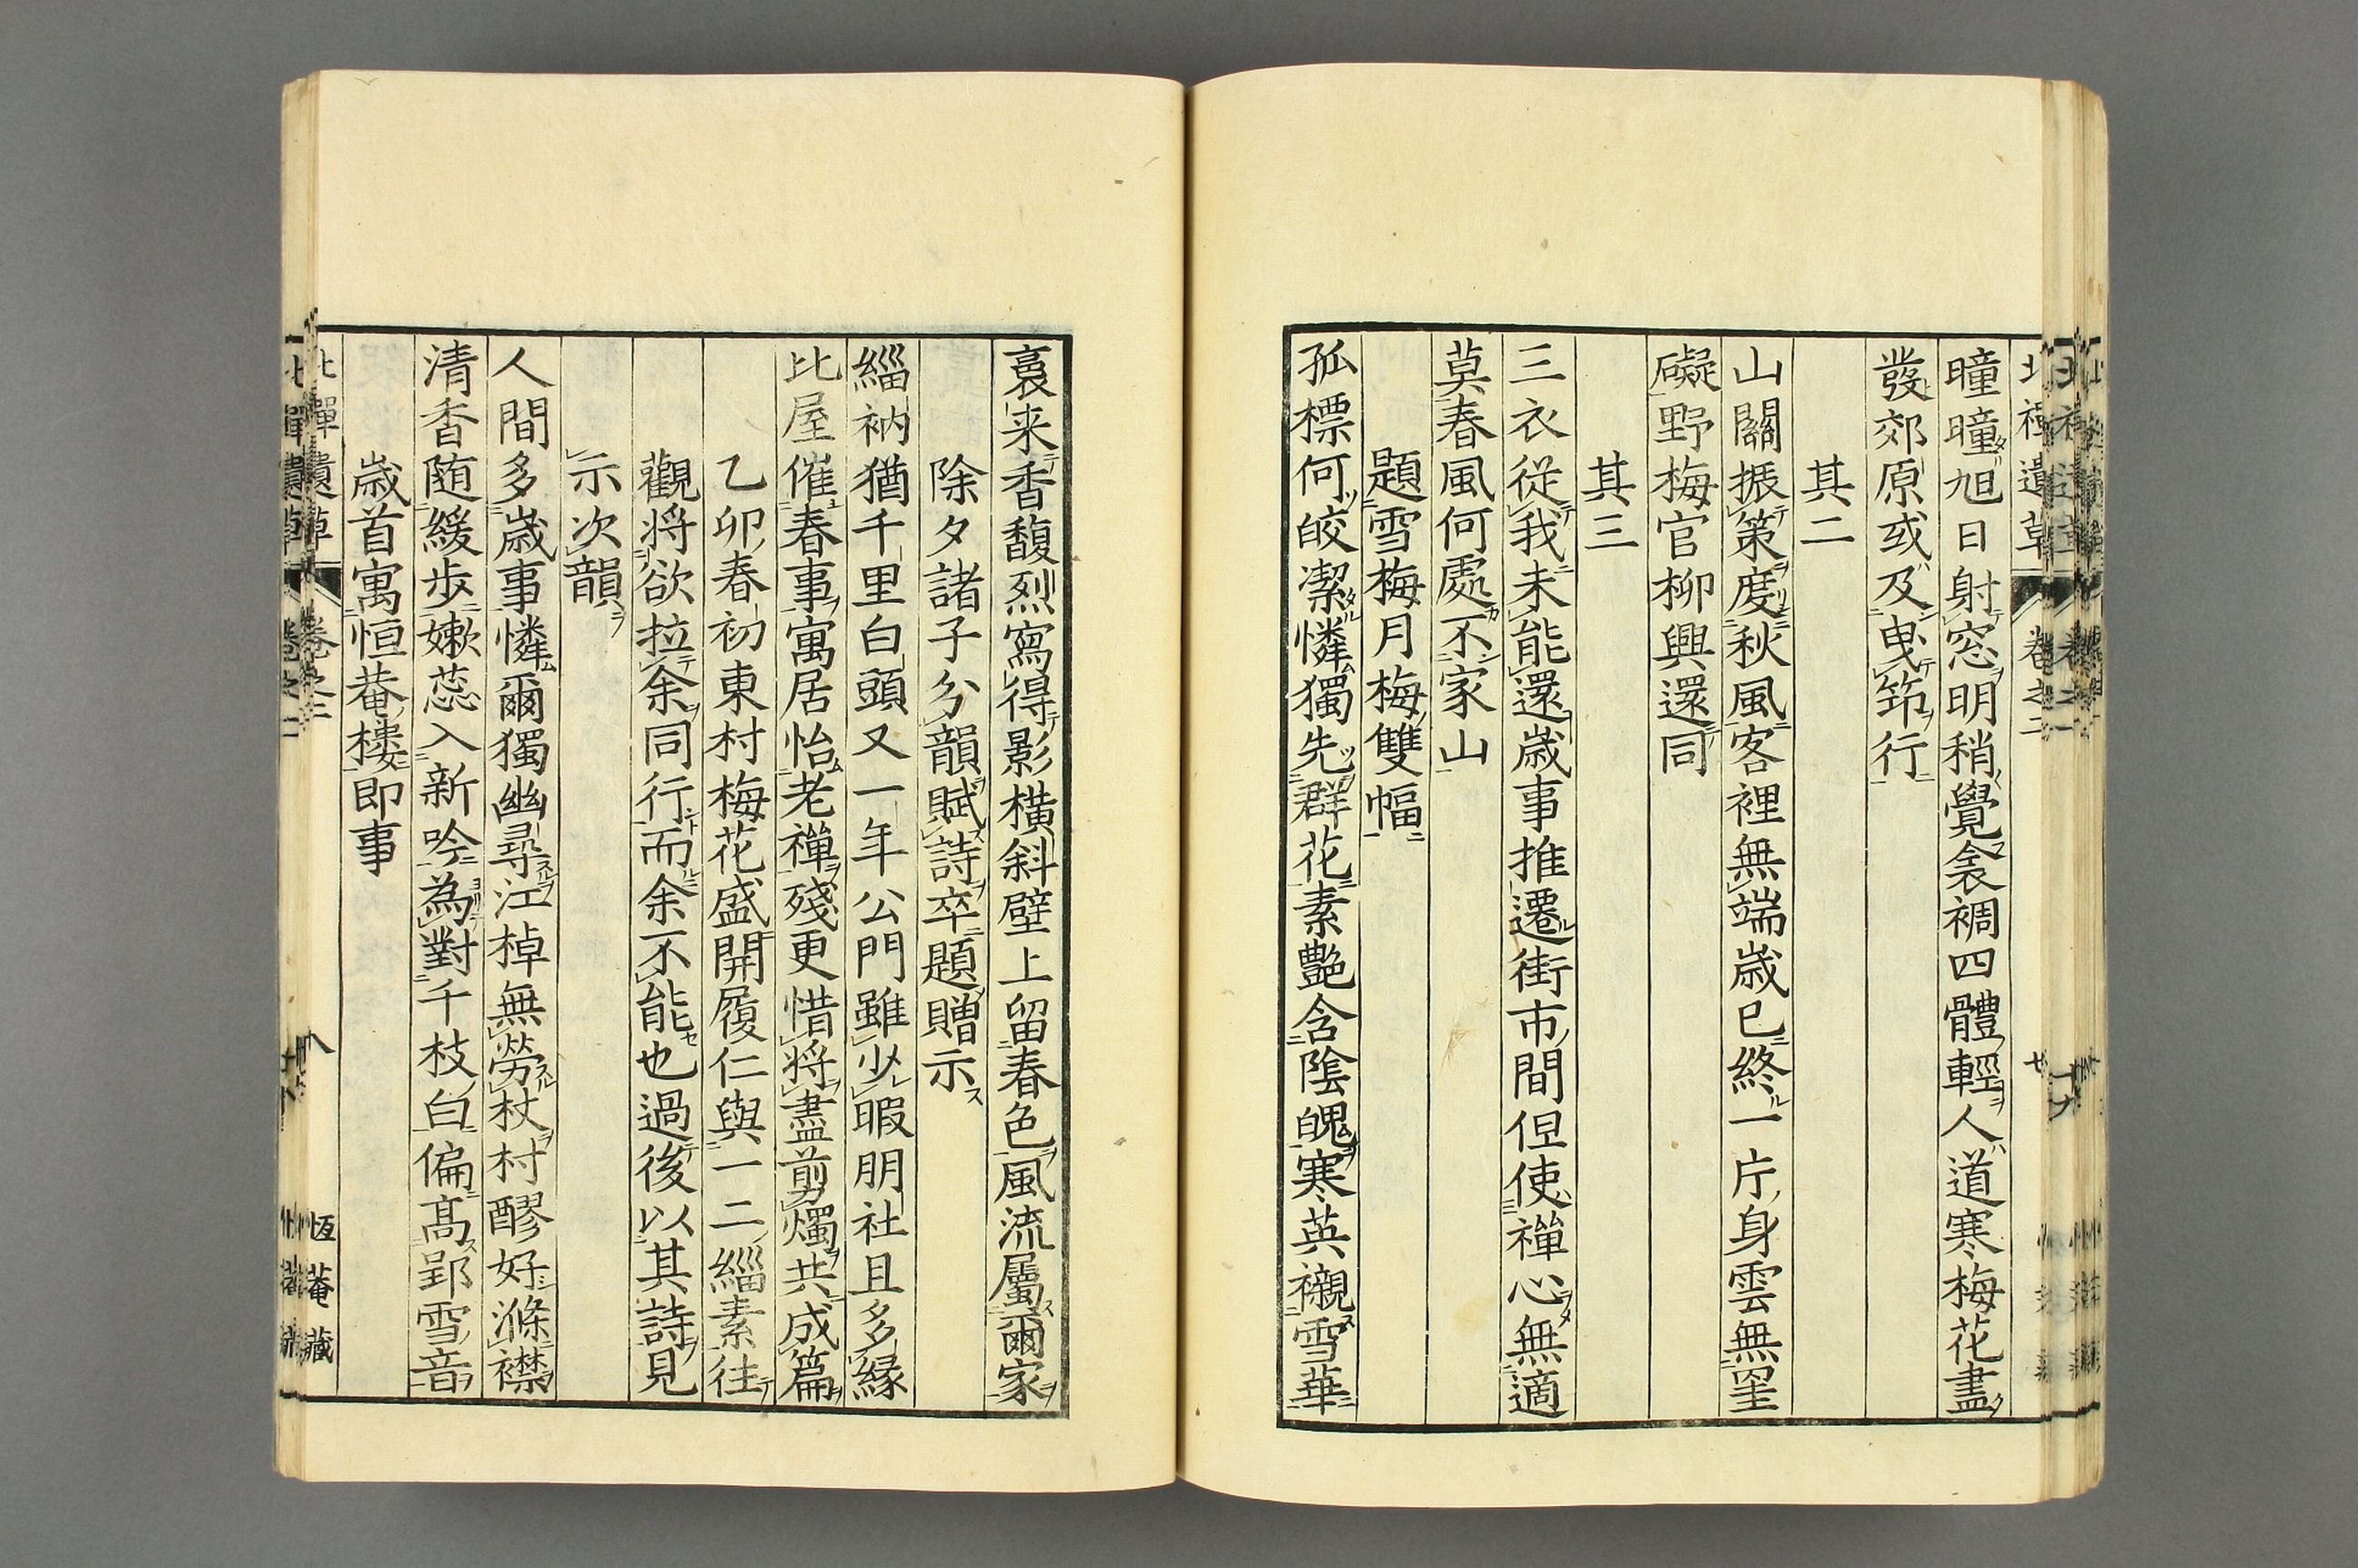 北禪遺草 卷之二
曈曈旭日射窓明稍覺衾裯四體輕人道寒梅花盡
發郊原或及曳筇行
其二
山關振策度秋風客裡無端歳已終一片身雲無罣
礙野梅官柳興還同
其三
三衣從我未能還歳事推遷街市間但使禪心無適
莫春風何處不家山
題雪梅月梅雙幅
孤標何皎潔憐獨先群花素艷含陰魄寒英襯雪華
裛来香馥烈寫得影横斜壁上留春色風流屬爾家
除夕諸子分韻賦詩卒題贈示
緇衲猶千里白頭又一年公門雖少暇朋社且多縁
比屋催春事寓居怡老禪殘更惜將盡剪燭共成篇
乙卯春初東村梅花盛開履仁與一二緇素往
觀将欲拉余同行而余不能也過後以其詩見
示次韻
人間多歳事憐爾獨幽尋江棹無勞杖村醪好滌襟
清香随緩歩嫰蕊入新吟為對千枝白偏高郢雪音
歳首寓恒菴樓即事
北禪遺草 卷之二 恆菴藏